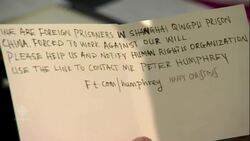 WE ARE FOREIGN PRISONERS IN SHANGHAI QINGPU PRISON
CHINA. FORCED TO WORK AGAINST OUR WILL
PLEASE HELP US AND NOTIFY HUMAN RIGHTS ORGANIZATION
USE THE LINK TO CONTACT MR PETER HUMPHREY
Ft.com/humphrey